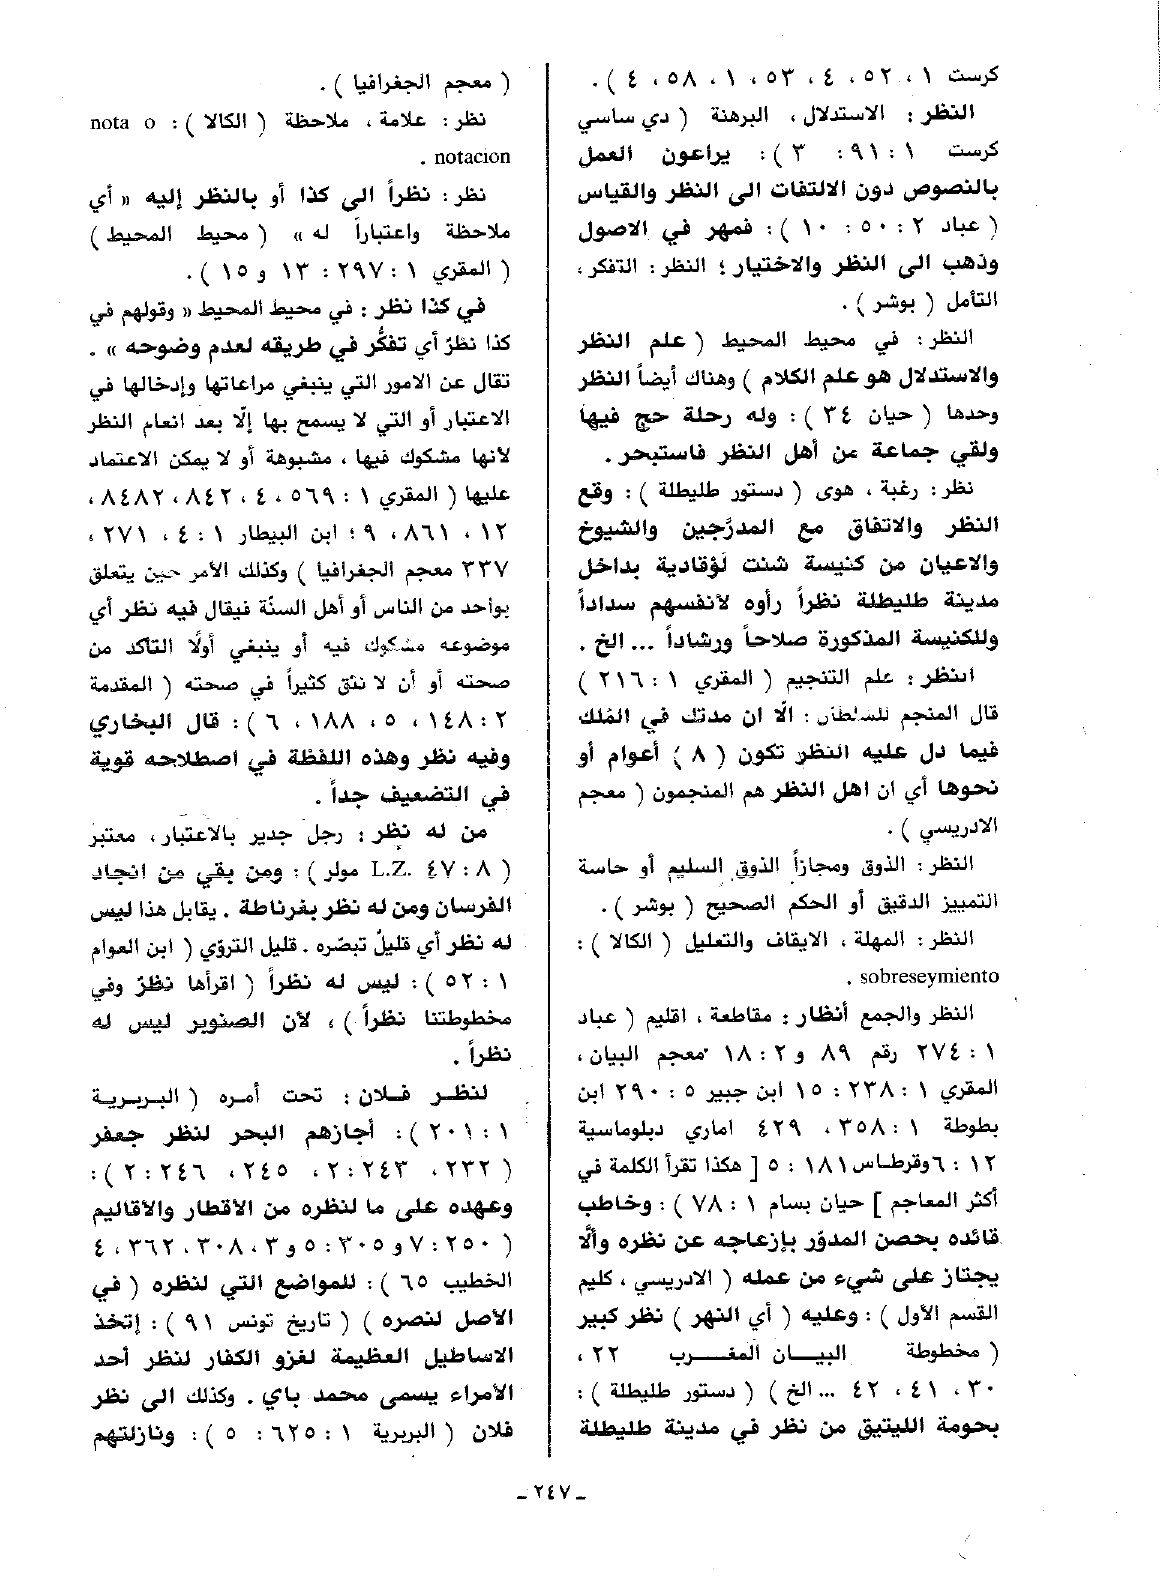 كرست ١ ، ٥٢ ، ٤ ، ٥٣ ، ١ ، ٥٨ ، ٤ ) .
النظر : الاستدلال ، البرهنة ( دي ساسي
كرست ١ : ٩١ : ٣ ) : يراعون العمل
بالنصوص دون الالتفات الى النظر والقياس
( عباد ٢ : ٥٠ : ١٠ ) : فمهر في الاصول
وذهب الى النظر والاختيار ؛ النظر : التفكر ،
التأمل ( بوشر ) .
النظر : في محيط المحيط ( علم النظر
والاستدلال هو علم الكلام ) وهناك أيضاً النظر
وحدها ( حيان ٣٤ ) : وله رحلة حج فيها
ولقي جماعة من أهل النظر فاستبحر .
نظر : رغبة ، هوى ( دستور طليطلة ) : وقع
النظر والاتفاق مع المدرّجين والشيوخ
والاعيان من كنيسة شنت لؤقادية بداخل
مدينة طليطلة نظراً رأوه لأنفسهم سداداً
وللكنيسة المذكورة صلاحاً ورشاداً ... الخ .
النظر : علم التنجيم ( المقري ١ : ٢١٦ )
قال المنجم للسلطان : الّا ان مدتك في الملك
فيما دل عليه النظر تكون ( ٨ ) أعوام أو
نحوها أي ان اهل النظر هم المنجمون ( معجم
الادريسي ) .
النظر : الذوق ومجازاً الذوق السليم أو حاسة
التمييز الدقيق أو الحكم الصحيح ( بوشر ) .
النظر : المهلة ، الايقاف والتعليل ( الكالا ) :
sobreseymiento .
النظر والجمع أنظار : مقاطعة ، اقليم ( عباد
١ : ٢٧٤ رقم ٨٩ و ٢ : ١٨ معجم البيان ،
المقري ١ : ٢٣٨ : ١٥ ابن جبير ٥ : ٢٩٠ ابن
بطوطة ١ : ٣٥٨ ، ٤٢٩ اماري دبلوماسية
١٢ : ٦ وقرطاس ١٨١ : ٥ [ هكذا تقرأ الكلمة في
أكثر المعاجم ] حيان بسام ١ : ٧٨ ) : وخاطب
قائده بحصن المدوّر بإزعاجه عن نظره وألّا
يجتاز على شيء من عمله ( الادريسي ، كليم
القسم الأول ) : وعليه ( أي النهر ) نظر كبير
( مخطوطة البيـــان المغـــرب ٢٢ ،
٣٠ ، ٤١ ، ٤٢ ... الخ ) ( دستور طليطلة ) :
بحومة الليتيق من نظر في مدينة طليطلة
( معجم الجغرافيا ) .
نظر : علامة ، ملاحظة ( الكالا ) : nota o
notacion .
نظر : نظراً الى كذا أو بالنظر إليه « أي
ملاحظة واعتباراً له » ( محيط المحيط )
( المقري ١ : ٢٩٧ : ١٣ و ١٥ ) .
في كذا نظر : في محيط المحيط « وقولهم في
كذا نظرٌ أي تفكُّر في طريقه لعدم وضوحه » .
تقال عن الامور التي ينبغي مراعاتها وإدخالها في
الاعتبار أو التي لا يسمح بها إلّا بعد انعام النظر
لأنها مشكوك فيها ، مشبوهة أو لا يمكن الاعتماد
عليها ( المقري ١ : ٥٦٩ ، ٤ ، ٨٤٢ ، ٨٤٨٢ ،
١٢ ، ٨٦١ ، ٩ ؛ ابن البيطار ١ : ٤ ، ٢٧١ ،
٣٣٧ معجم الجغرافيا ) وكذلك الأمر حين يتعلق
بواحد من الناس أو أهل السنّة فيقال فيه نظر أي
موضوعه مشكوك فيه أو ينبغي أولًا التأكد من
صحته أو أن لا نثق كثيراً في صحته ( المقدمة
٢ : ١٤٨ ، ٥ ، ١٨٨ ، ٦ ) : قال البخاري
وفيه نظر وهذه اللفظة في اصطلاحه قوية
في التضعيف جداً .
من له نظر : رجل جدير بالاعتبار ، معتبر
( ٨ : ٤٧ L.Z. مولر ) : ومن بقي من انجاد
الفرسان ومن له نظر بغرناطة . يقابل هذا ليس
له نظر أي قليلٌ تبصّره . قليل التروّي ( ابن العوام
١ : ٥٢ ) : ليس له نظراً ( اقرأها نظرٌ وفي
مخطوطتنا نظراً ) ، لأن الصنوبر ليس له
نظراً .
لنظـر فـلان : تحت أمره ( البـربـريـة
١ : ٢٠١ ) : أجازهم البحر لنظر جعفر
( ٢٣٢ ، ٢٤٣ : ٢ ، ٢٤٥ ، ٢٤٦ : ٢ ) :
وعهده على ما لنظره من الأقطار والأقاليم
( ٢٥٠ : ٧ و ٣٠٥ : ٥ و ٣ ، ٣٠٨ ، ٣٦٢ ، ٤
الخطيب ٦٥ ) : للمواضع التي لنظره ( في
الأصل لنصره ) ( تاريخ تونس ٩١ ) : إتخذ
الاساطيل العظيمة لغزو الكفار لنظر أحد
الأمراء يسمى محمد باي . وكذلك الى نظر
فلان ( البربرية ١ : ٦٢٥ : ٥ ) : ونازلتهم
ـ ٢٤٧ ـ